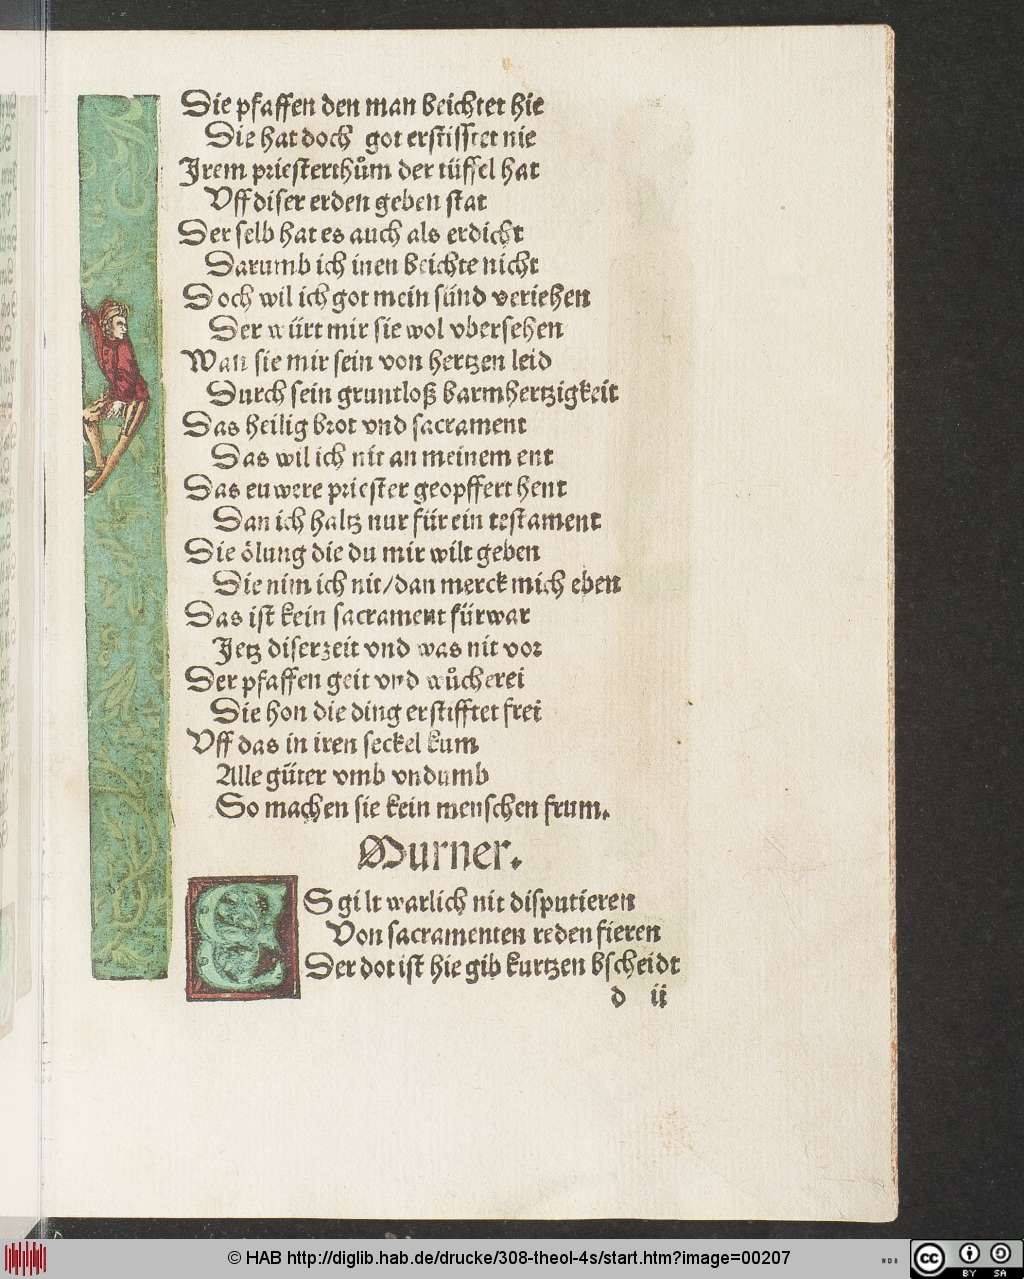 Die pfaffen den man beichtet hie
Die hat doch got erstifftet nie
Irem priesterthům der tüffel hat
Vff diser erden geben stat
Der selb hat es auch als erdicht
Darumb ich inen beichte nicht
Doch wil ich got mein sünd veriehen
Der würt mir sie wol vbersehen
Wan sie mir sein von hertzen leid
Durch sein gruntloß barmhertzigkeit
Das heilig brot vnd sacrament
Das wil ich nit an meinem ent
Das euwere priester geopffert hent
Dan ich haltz nur für ein testament
Die ölung die du mir wilt geben
Die nim ich nit/dan merck mich eben
Das ist kein sacrament fürwar
Jetz diser zeit vnd was nit vor
Der pfaffen geit vnd wůcherei
Die hon die ding erstifftet frei
Vff das in iren seckel kum
Alle güter vmb vndumb
So machen sie kein menschen frum.
Murner.
ES gilt warlich nit disputieren
Von sacramenten reden fieren
Der dot ist hie gib kurtzen bscheidt
d ii
© HAB http://diglib.hab.de/drucke/308-theol-4s/start.htm?image=00207
WDB
cc BY SA